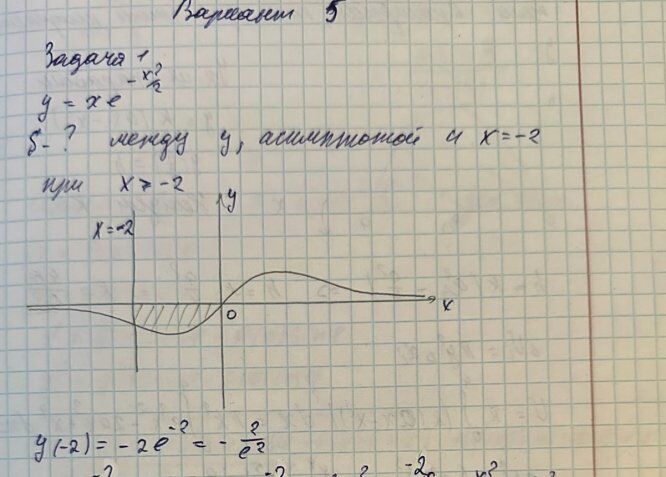 Вариант 5
Задача 1
y = x e^{-x²/2}
S - ? между y, асимптотой и x = -2
при x ≥ -2
y
x = -2
0
x
y(-2) = -2e^{-2} = -\frac{2}{e^2}